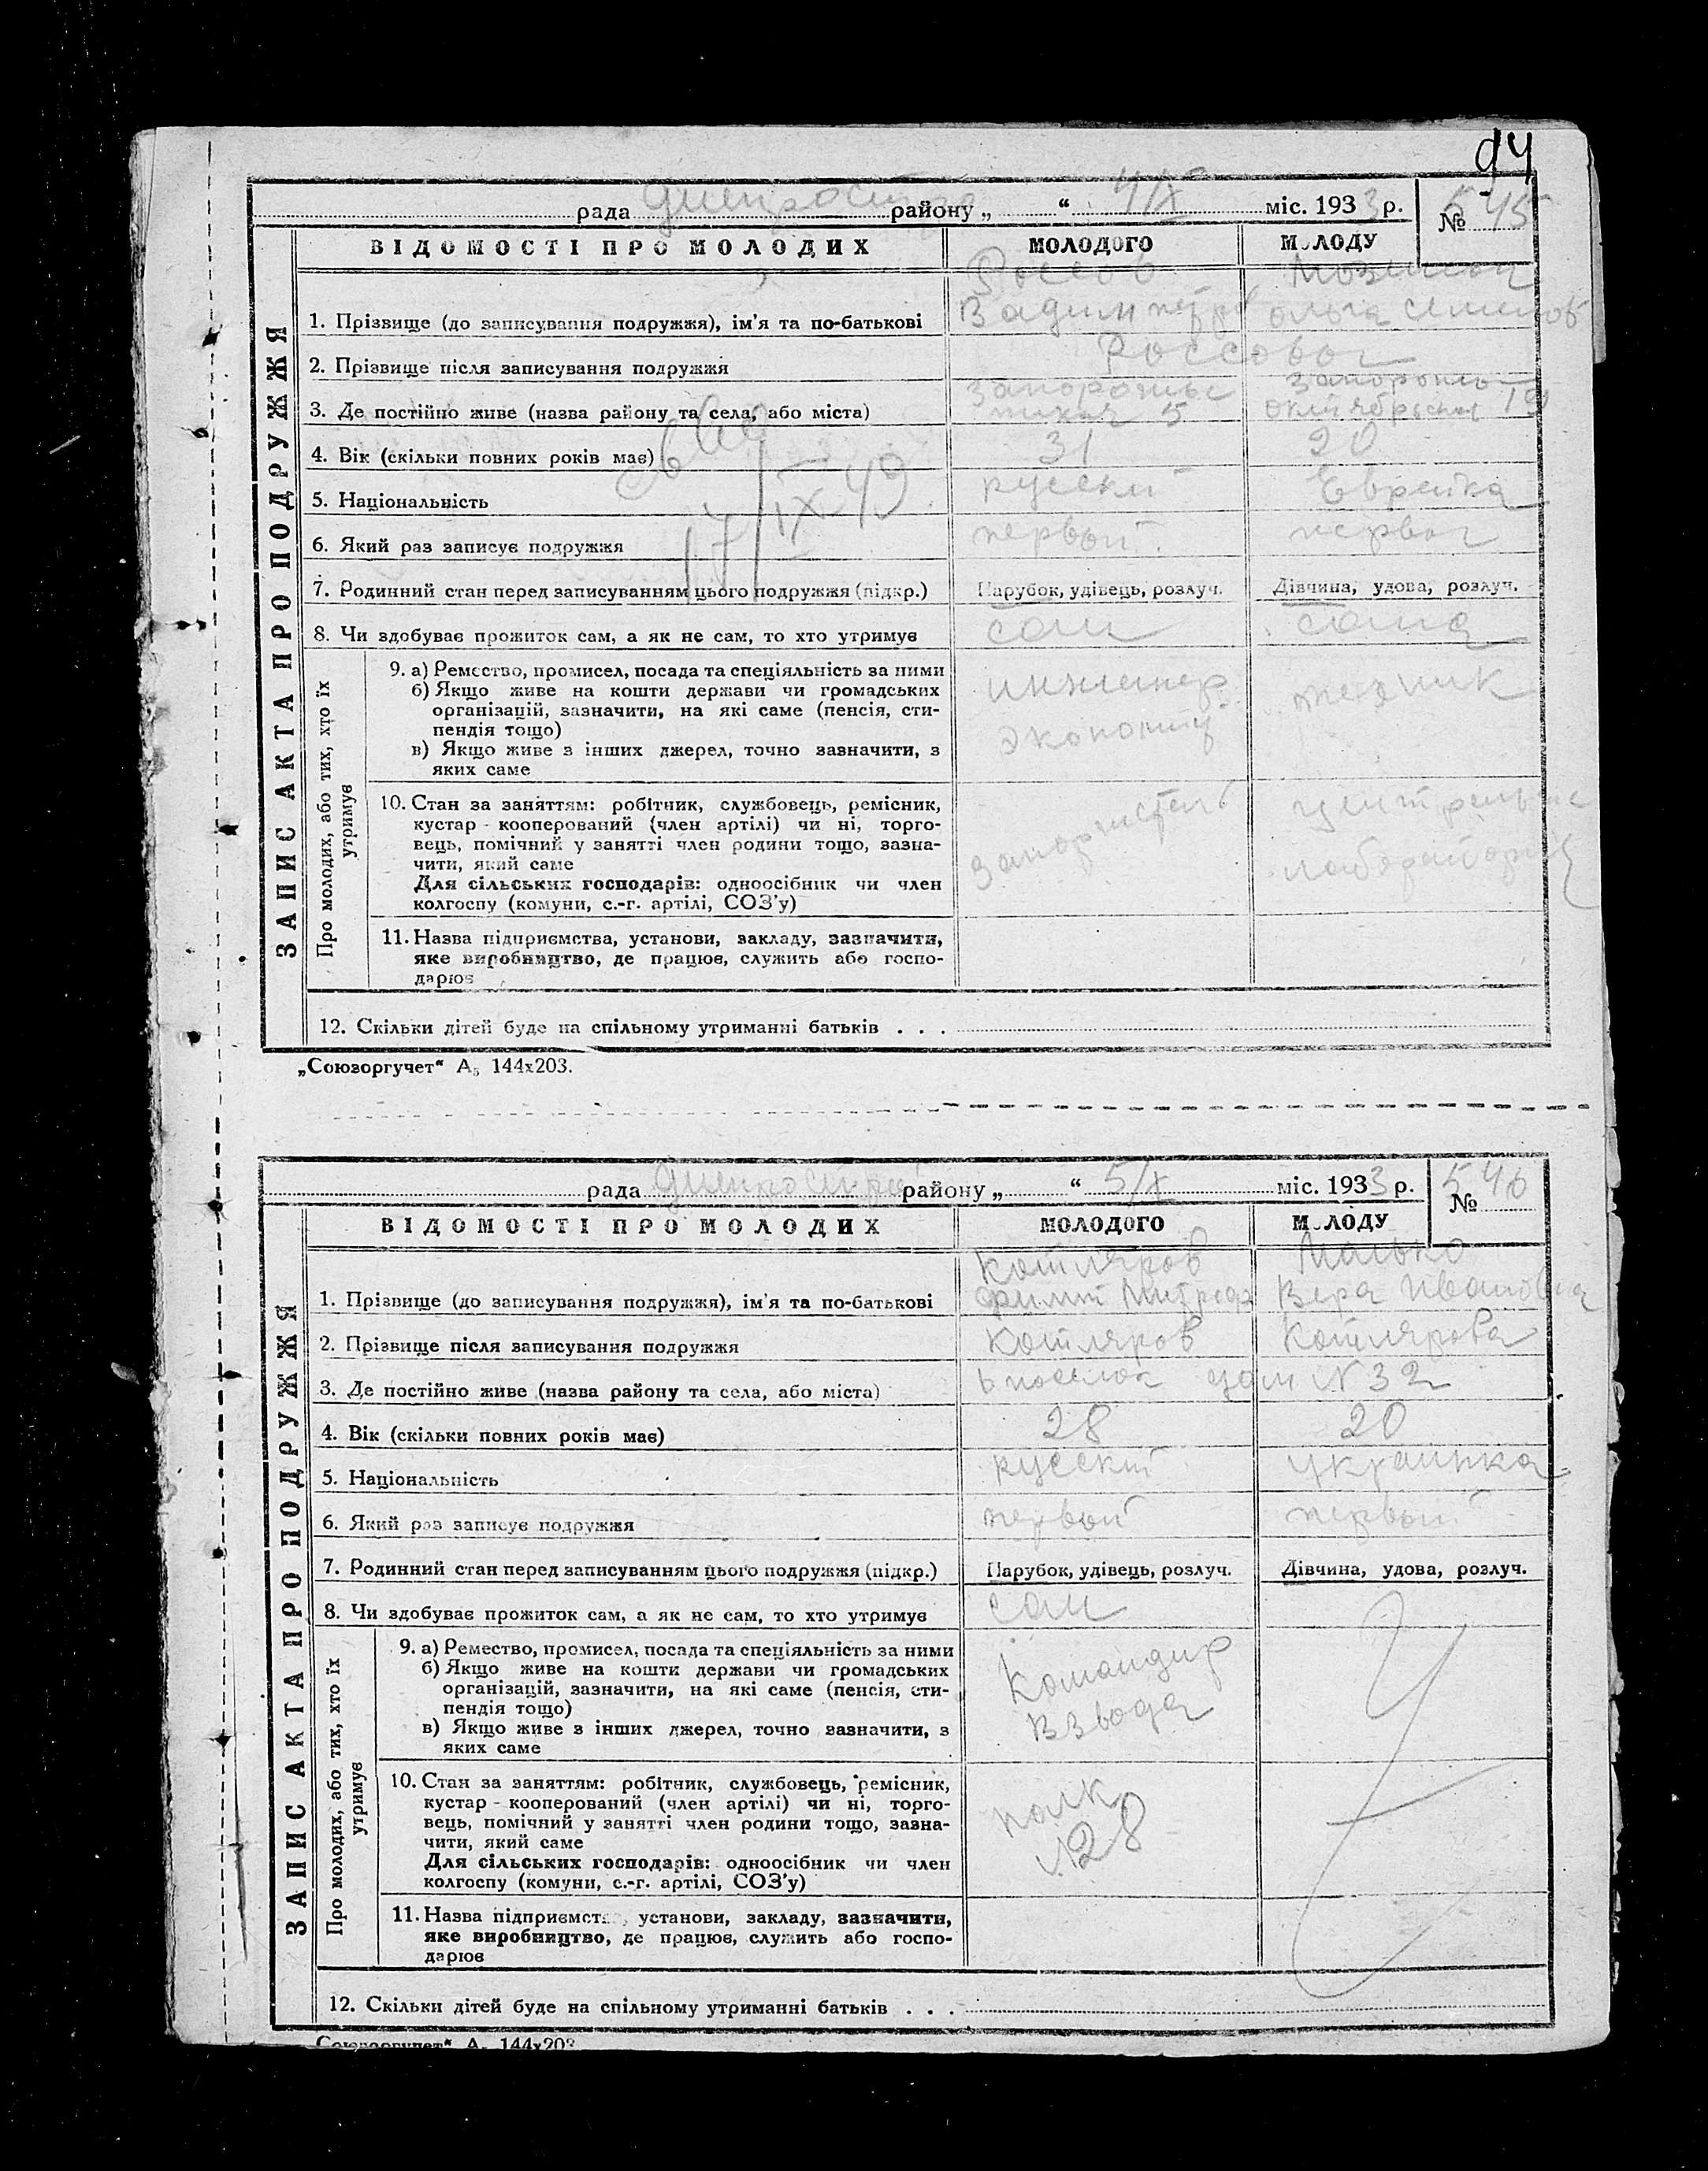 94
рада Днепрострой району „ “ 4/X міс. 1933 р. № 545
ВІДОМОСТІ ПРО МОЛОДИХ МОЛОДОГО МОЛОДУ
ЗАПИС АКТА ПРО ПОДРУЖЖЯ
Россов
1. Прізвище (до записування подружжя), ім’я та по-батькові Вадим Петр Ольга
2. Прізвище після записування подружжя Россовы
Запорожье
3. Де постійно живе (назва району та села, або міста) 5 19
4. Вік (скільки повних років має) 31 20
5. Національність русский Еврейка
17/IX 49
6. Який раз записує подружжя первый первый
7. Родинний стан перед записуванням цього подружжя (підкр.) Парубок, удівець, розлуч. Дівчина, удова, розлуч.
8. Чи здобуває прожиток сам, а як не сам, то хто утримує сам сама
Про молодих, або тих, хто їх утримує
9. а) Ремество, промисел, посада та спеціяльність за ними
б) Якщо живе на кошти держави чи громадських
організацій, зазначити, на які саме (пенсія, сти-
пендія тощо)
в) Якщо живе з інших джерел, точно зазначити, з
яких саме
инженер
техник
10. Стан за заняттям: робітник, службовець, ремісник,
кустар - кооперований (член артілі) чи ні, торго-
вець, помічний у занятті член родини тощо, зазна-
чити, який саме
Для сільських господарів: одноосібник чи член
колгоспу (комуни, с.-г. артілі, СОЗ’у)
11. Назва підприємства, установи, закладу, зазначити,
яке виробництво, де працює, служить або госпо-
дарює
12. Скільки дітей буде на спільному утриманні батьків . . .
„Союзоргучет“ А₅ 144х203.
рада Днепрострой району „ “ 5/X міс. 1933 р. № 546
ВІДОМОСТІ ПРО МОЛОДИХ МОЛОДОГО МОЛОДУ
ЗАПИС АКТА ПРО ПОДРУЖЖЯ
Котляров Малько
1. Прізвище (до записування подружжя), ім’я та по-батькові Вера Ивановна
2. Прізвище після записування подружжя Котляров Котлярова
3. Де постійно живе (назва району та села, або міста) 6 поселок дом № 32
4. Вік (скільки повних років має) 28 20
5. Національність русский украинка
6. Який раз записує подружжя первый первый
7. Родинний стан перед записуванням цього подружжя (підкр.) Парубок, удівець, розлуч. Дівчина, удова, розлуч.
8. Чи здобуває прожиток сам, а як не сам, то хто утримує сам
Про молодих, або тих, хто їх утримує
9. а) Ремество, промисел, посада та спеціяльність за ними
б) Якщо живе на кошти держави чи громадських
організацій, зазначити, на які саме (пенсія, сти-
пендія тощо)
в) Якщо живе з інших джерел, точно зазначити, з
яких саме
Командир
взвода
10. Стан за заняттям: робітник, службовець, ремісник,
кустар - кооперований (член артілі) чи ні, торго-
вець, помічний у занятті член родини тощо, зазна-
чити, який саме
Для сільських господарів: одноосібник чи член
колгоспу (комуни, с.-г. артілі, СОЗ’у)
полк
№28
11. Назва підприємства, установи, закладу, зазначити,
яке виробництво, де працює, служить або госпо-
дарює
12. Скільки дітей буде на спільному утриманні батьків . . .
Союзоргучет“ А₅ 144х203